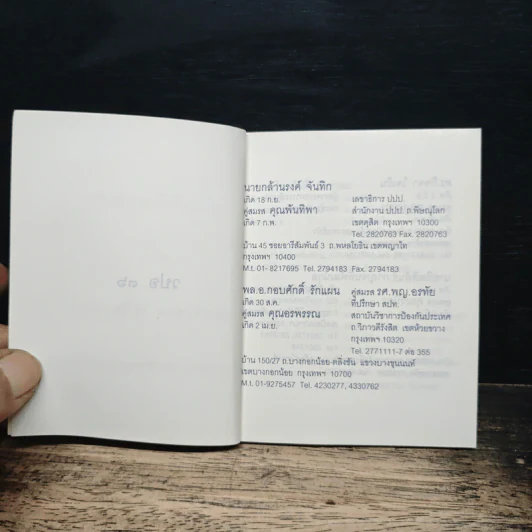 นายกล้านรงค์ จันทิก
เกิด 18 ก.ย. เลขาธิการ ปปป.
คู่สมรส คุณพันทิพา สำนักงาน ปปป. ถ.พิษณุโลก
เกิด 7 ก.พ. เขตดุสิต กรุงเทพฯ 10300
Tel. 2820763 Fax. 2820763
บ้าน 45 ซอยอารีสัมพันธ์ 3 ถ.พหลโยธิน เขตพญาไท
กรุงเทพฯ 10400
M.t. 01-8217695 Tel. 2794183 Fax. 2794183
พล.อ.กอบศักดิ์ รักแผน คู่สมรส รศ.พญ.อรทัย
เกิด 30 ส.ค. ที่ปรึกษา สปท.
คู่สมรส คุณอรพรรณ สถาบันวิชาการป้องกันประเทศ
เกิด 2 เม.ย. ถ.วิภาวดีรังสิต เขตห้วยขวาง
กรุงเทพฯ 10320
Tel. 2771111-7 ต่อ 355
บ้าน 150/27 ถ.บางกอกน้อย-ตลิ่งชัน แขวงบางขุนนนท์
เขตบางกอกน้อย กรุงเทพฯ 10700
M.t. 01-9275457 Tel. 4230277, 4330762